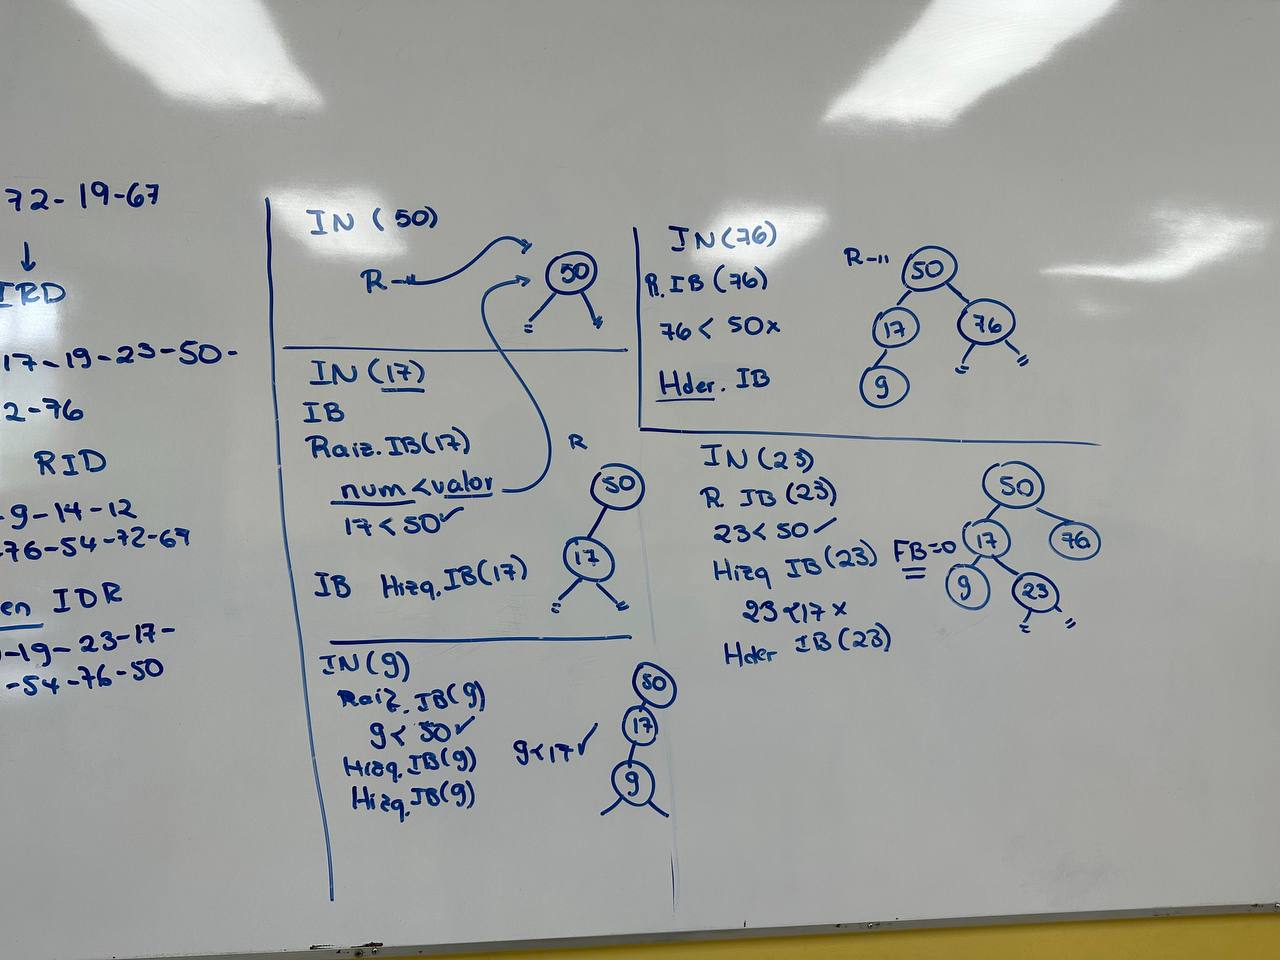 72-19-67
↓
IRD
17-19-23-50-
2-76
RID
-9-14-12
-76-54-72-67
en IDR
-19-23-17-
-54-76-50
IN (50)
R
50
IN (17)
IB
Raiz.IB(17)
num<valor
17<50✓
IB Hizq.IB(17)
R
50
17
IN(9)
Raiz.IB(9)
9<50✓
Hizq.IB(9)
Hizq.IB(9)
9<17✓
50
17
9
IN(76)
R.IB(76)
76<50x
Hder.IB
R
50
17
76
9
IN(23)
R IB(23)
23<50✓
Hizq IB(23)
23<17x
Hder IB(23)
FB=0
50
17
76
9
23